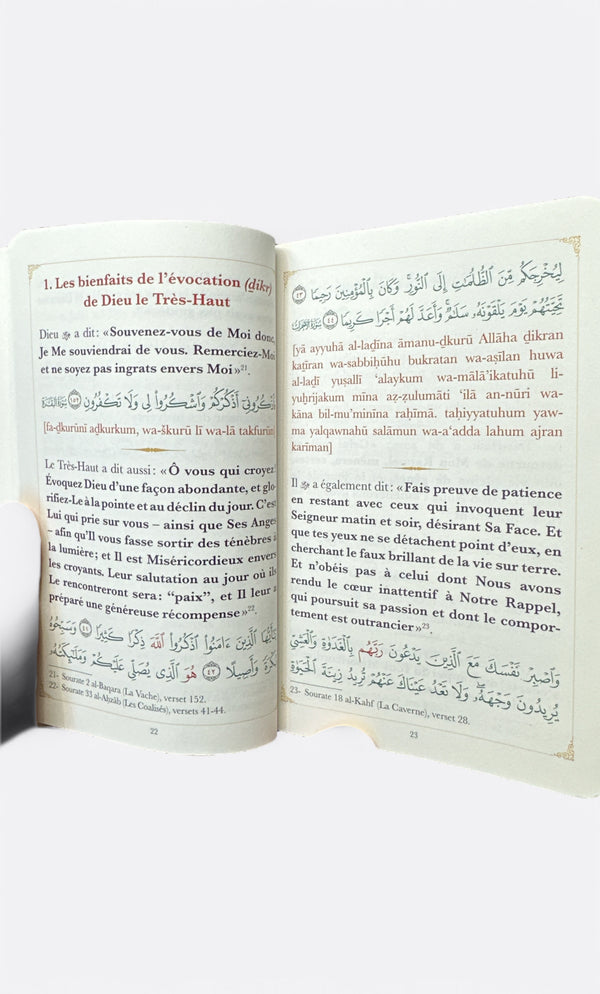 1. Les bienfaits de l’évocation (ḏikr)
de Dieu le Très-Haut
Dieu ﷻ a dit : «Souvenez-vous de Moi donc,
Je Me souviendrai de vous. Remerciez-Moi
et ne soyez pas ingrats envers Moi»²¹.
فَٱذْكُرُونِىٓ أَذْكُرْكُمْ وَٱشْكُرُوا۟ لِى وَلَا تَكْفُرُونِ ١٥٢ سورة البقرة
[fa-ḏkurūnī aḏkurkum, wa-škurū lī wa-lā takfurūn]
Le Très-Haut a dit aussi : «Ô vous qui croyez!
Évoquez Dieu d’une façon abondante, et glo-
rifiez-Le à la pointe et au déclin du jour. C’est
Lui qui prie sur vous – ainsi que Ses Anges
– afin qu’Il vous fasse sortir des ténèbres à
la lumière; et Il est Miséricordieux envers
les croyants. Leur salutation au jour où ils
Le rencontreront sera: “paix”, et Il leur a
préparé une généreuse récompense»²².
يَٰٓأَيُّهَا ٱلَّذِينَ ءَامَنُوا۟ ٱذْكُرُوا۟ ٱللَّهَ ذِكْرًا كَثِيرًا ٤١ وَسَبِّحُوهُ
بُكْرَةً وَأَصِيلًا ٤٢ هُوَ ٱلَّذِى يُصَلِّى عَلَيْكُمْ وَمَلَٰٓئِكَتُهُۥ
21- Sourate 2 al-Baqara (La Vache), verset 152.
22- Sourate 33 al-Aḥzāb (Les Coalisés), versets 41-44.
22
لِيُخْرِجَكُم مِّنَ ٱلظُّلُمَٰتِ إِلَى ٱلنُّورِ ۚ وَكَانَ بِٱلْمُؤْمِنِينَ رَحِيمًا ٤٣
تَحِيَّتُهُمْ يَوْمَ يَلْقَوْنَهُۥ سَلَٰمٌ ۚ وَأَعَدَّ لَهُمْ أَجْرًا كَرِيمًا ٤٤ سورة الأحزاب
[yā ayyuhā al-laḏīna āmanu-ḏkurū Allāha ḏikran
kaṯīran wa-sabbiḥūhu bukratan wa-aṣīlan huwa
al-laḏī yuṣallī ‘alaykum wa-mālā’ikatuhū li-
yuḫrijakum mīna aẓ-ẓulumāti ’ilā an-nūri wa-
kāna bil-mu’minīna raḥīma. taḥiyyatuhum yaw-
ma yalqawnahū salāmun wa-a‘adda lahum ajran
karīman]
Il ﷻ a également dit : «Fais preuve de patience
en restant avec ceux qui invoquent leur
Seigneur matin et soir, désirant Sa Face. Et
que tes yeux ne se détachent point d’eux, en
cherchant le faux brillant de la vie sur terre.
Et n’obéis pas à celui dont Nous avons
rendu le cœur inattentif à Notre Rappel,
qui poursuit sa passion et dont le compor-
tement est outrancier»²³.
وَٱصْبِرْ نَفْسَكَ مَعَ ٱلَّذِينَ يَدْعُونَ رَبَّهُم بِٱلْغَدَوٰةِ وَٱلْعَشِىِّ
يُرِيدُونَ وَجْهَهُۥ ۖ وَلَا تَعْدُ عَيْنَاكَ عَنْهُمْ تُرِيدُ زِينَةَ ٱلْحَيَوٰةِ
23- Sourate 18 al-Kahf (La Caverne), verset 28.
23